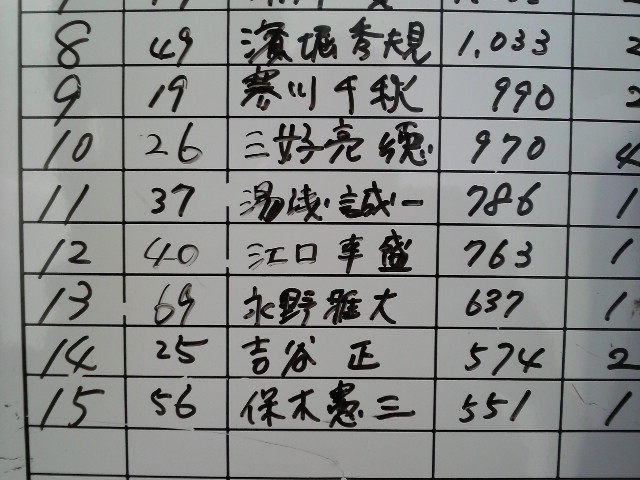 8 49 濱堀秀規 1,033 2
9 19 寒川千秋 990 2
10 26 三好亮徳 970 4
11 37 湯浅誠一 786 1
12 40 江口幸盛 763 1
13 69 永野雅大 637 1
14 25 吉谷 正 574 2
15 56 保木憲三 551 1